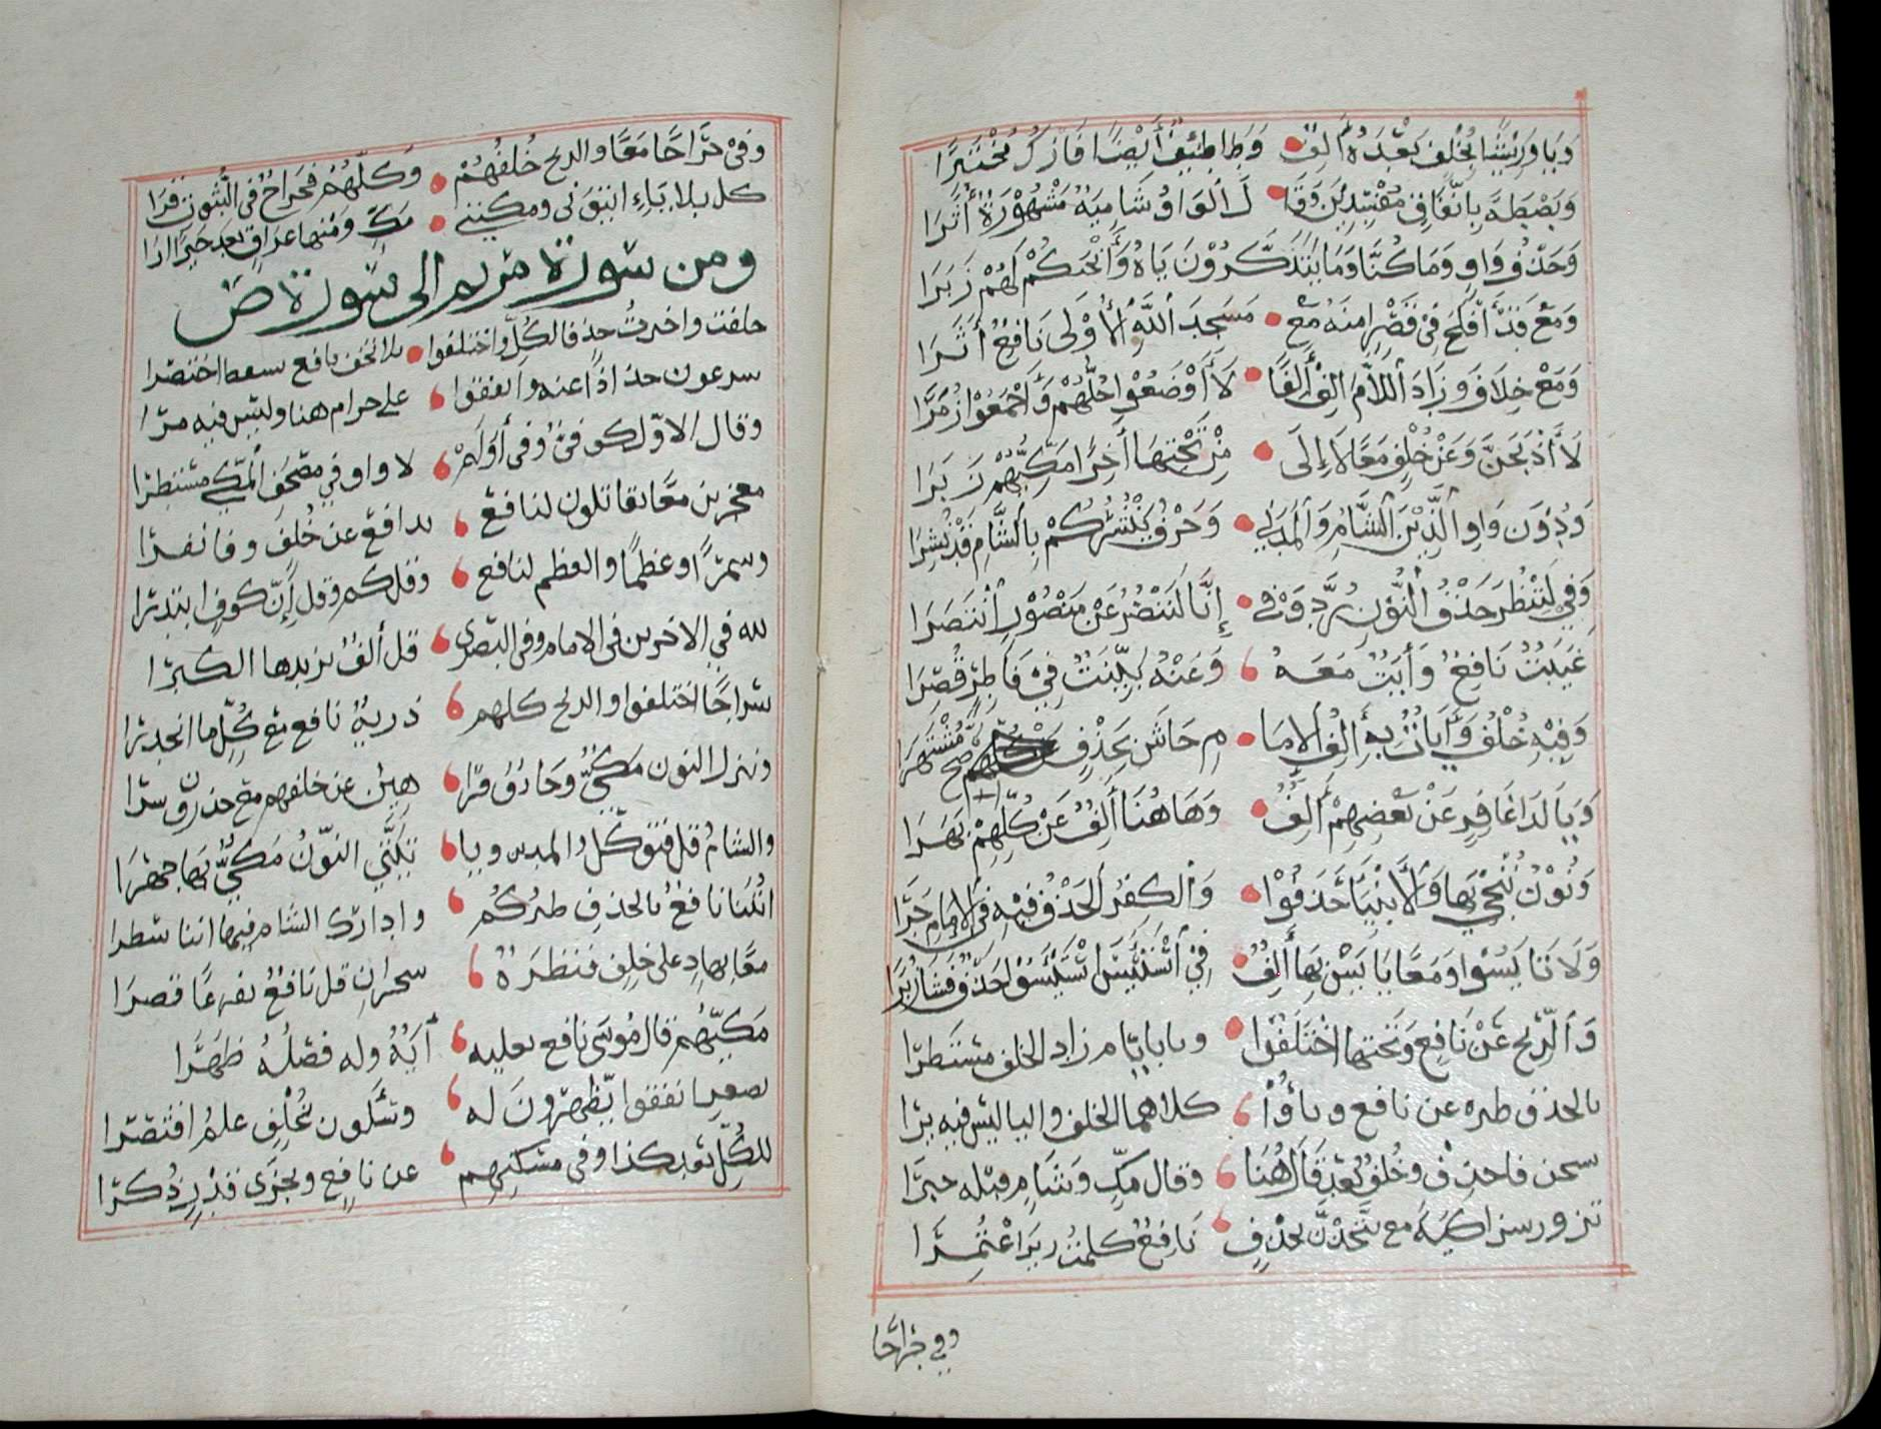 وَيَا وَرِيْشًا بِخُلْفٍ بَعْدَهُ أَلِفٌ وَطَا طٰئِفٌ أَيْضًا فَازْكُ مُخْتَبِرًا
وَبَصْطَةً بِاتِّفَاقٍ مُفْسِدِيْنَ وَقَا لَ ٱلْوَاوُ شَامِيَةٌ مَشْهُوْرَةٌ أَثَرَا
وَحَذْفُ وَاوِ وَمَا كُنَّا وَمَا يَتَذَكَّرُوْنَ يَاهُ وَأَنْجٰكُمْ لَهُمْ زُبِرَا
وَمَعْ قَدَ أَفْلَحَ فِيْ قَصْرٍ أَمِنَهُ مَعْ مَسٰجِدَ ٱللّٰهِ ٱلْأُوْلَى نَافِعٌ أَثَرَا
وَمَعْ خِلَافَ وَزَادَ ٱللَّامَ الِفْ أَلِفًا لَا أَوْضَعُوْا جُلُّهُمْ وَأَجْمَعُوْا زُمَرَا
لَا أَذْبَحَنَّ وَعَنْ خُلْفٍ مَعًا لَا إِلَى مِنْ تَحْتِهَا أٰخِرًا مَكِّيُّهُمْ زَبَرَا
وَدُوْنَ وَاوِ ٱلَّذِيْنَ ٱلشَّامُ وَٱلْمَدَنِي وَحَرْفُ يَنْشُرُكُمْ بِالشَّامِ قَدْ نُشِرَا
وَفِيْ لِنَنْظُرَ حَذْفُ ٱلنُّوْنِ رُدَّ وَفِي إِنَّا لَنَنْصُرُ عَنْ مَنْصُوْرٍ ٱنْتَصَرَا
غَيٰبَتُ نَافِعٌ وَأٰيٰتٌ مَعَهُ وَعَنْهُ بَيِّنٰتٌ فِيْ فَاطِرٍ قُصِرَا
وَفِيْهِ خُلْفٌ وَأٰيٰاتٌ بِهِ أَلِفُ ٱلْإِمَا مِ حَاشَ بِحَذْفٍ صَحَّ مُشْتَهِرَا
وَيَا لَدَا غَافِرٍ عَنْ بَعْضِهِمْ أَلِفٌ وَهَا هُنَا أَلِفٌ عَنْ كُلِّهِمْ بَهَرَا
وَنُوْنُ نُنْجِيْ بِهَا وَٱلْأَنْبِيَا حَذَفُوْا وَٱلْكٰفِرُ ٱلْحَذْفُ فِيْهِ فِي ٱلْإِمَامِ جَرَا
وَلَا تَايْئَسُوْا وَمَعًا يَايْئَسْ بِهَا أَلِفٌ فِيْ ٱسْتَيْئَسَ ٱسْتَيْئَسُوْا حَذْفٌ فَشَا زُبُرَا
وَٱلرِّيْحُ عَنْ نَافِعٍ وَتَحْتَهَا اخْتَلَفُوْا وَيَا بِأَيَّامِ زَادَ الخُلْفُ مُسْتَطِرَا
بالحذف طٰيره عن نافع وبأَوْ كلاهما الخلف واليا ليس فيه يرا
سبحٰن فاحذف وخُلْفٌ بَعْدَ قَالَ هُنَا وقال مكٍّ وَشَامٍ قبله خبرا
تزور زٰكيةً مع لَتَّخَذْتَ بحذف نَافِعٌ كلمٰتُ ربي اعْتُمِرَا
وفي خراجا
وفيْ خَرَاجًا مَعًا والريح خُلْفُهُمْ وَكلُّهُمْ فخراجُ فى الثبوت قَرَا
كل بلا يَاءِ اتوني ومكّنني مَكٍّ ومنها عراق بعد خيرًا ارا
ومن سورة مريم الى سورة صٓ
خلقت واخترتُ حذفُ الكُلِّ واختلفوا بلا تخف نافع تسٰقط اختصرا
يسٰرعون جذاذًا عنه واتفقوا على حرام هنا وليس فيه مرا
وقال الاوّل كوفىٌّ وفى أَوَلَمْ لا واو في مصحف المكّي مستطرا
معٰجزين معًا يقٰاتلون لنافع يدافع عن خُلْفٍ وفا نفرا
وسٰمرًا وعظٰمًا والعظم لنافع وقل كم وقل إنّ كوفٍ ابتدرا
لله في الاخرين فى الامام وفى البصرى قل ألفٌ يزيدها الكبرا
سرٰجًا اختلفوا والريح كلهم ذريةُ نافع مع كُلِّ ما انحدرا
وننزل النون مَكِّيٌّ وحٰذِفُ فٰرهين عن خلفهم مع حذرون سرا
والشامُ قل فتوكّل والمدين ويا تيَنَّني النّونُ مَكّيٌّ بها جهرا
اٰيٰتُنا نافعٌ بالحذف طٰيركم وادارك الشام فيها اننا سطرا
معًا بهٰدٍ على خلفٍ فنٰظرةٌ سحران قل نافعٌ بفٰرغًا قصرا
مَكِّيُّهُمْ قال مُوْسٰى نافع بعليه أٰيَةٌ وله فصٰلُهُ ظهرا
تصٰعر اتفقوا تظٰهرونَ له ويسئلون بخلف علمُ اقتصرا
للكُلِّ بٰعد كذا وفي مسٰكنهم عن نافع ونجٰزى قٰدر ذُكرا